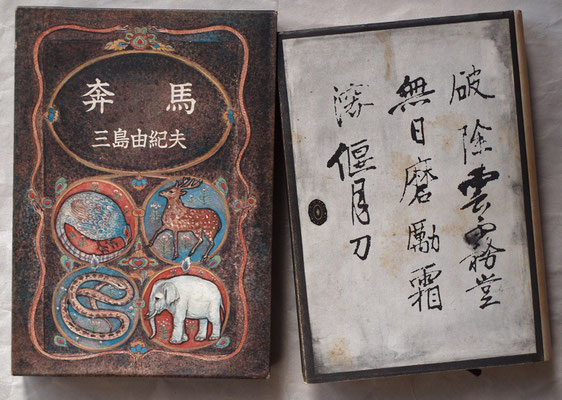 奔馬
三島由紀夫
破除雲霧豈
無日磨勵霜
深偃月刀